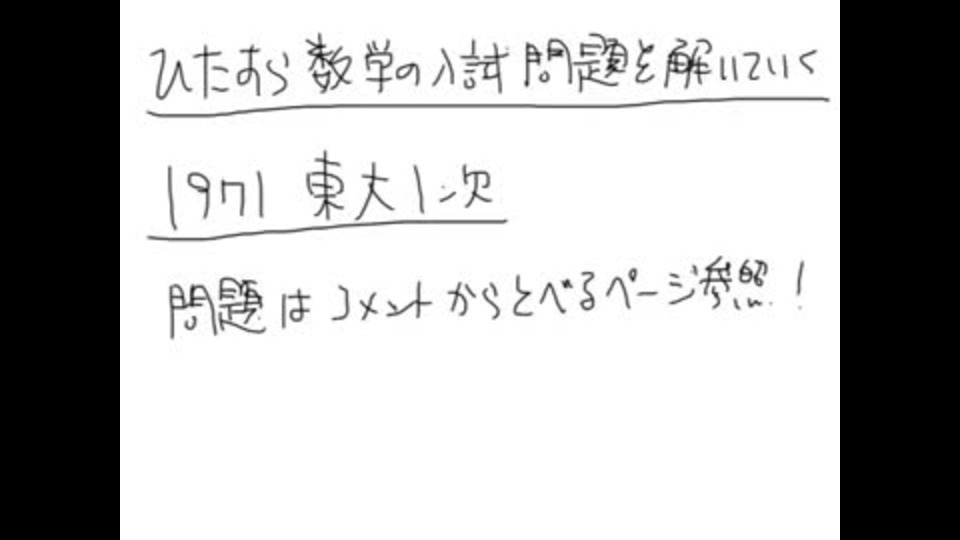 ひたすら数学の入試問題を解いていく
1971 東大1次
問題はコメントからとべるページ参照!